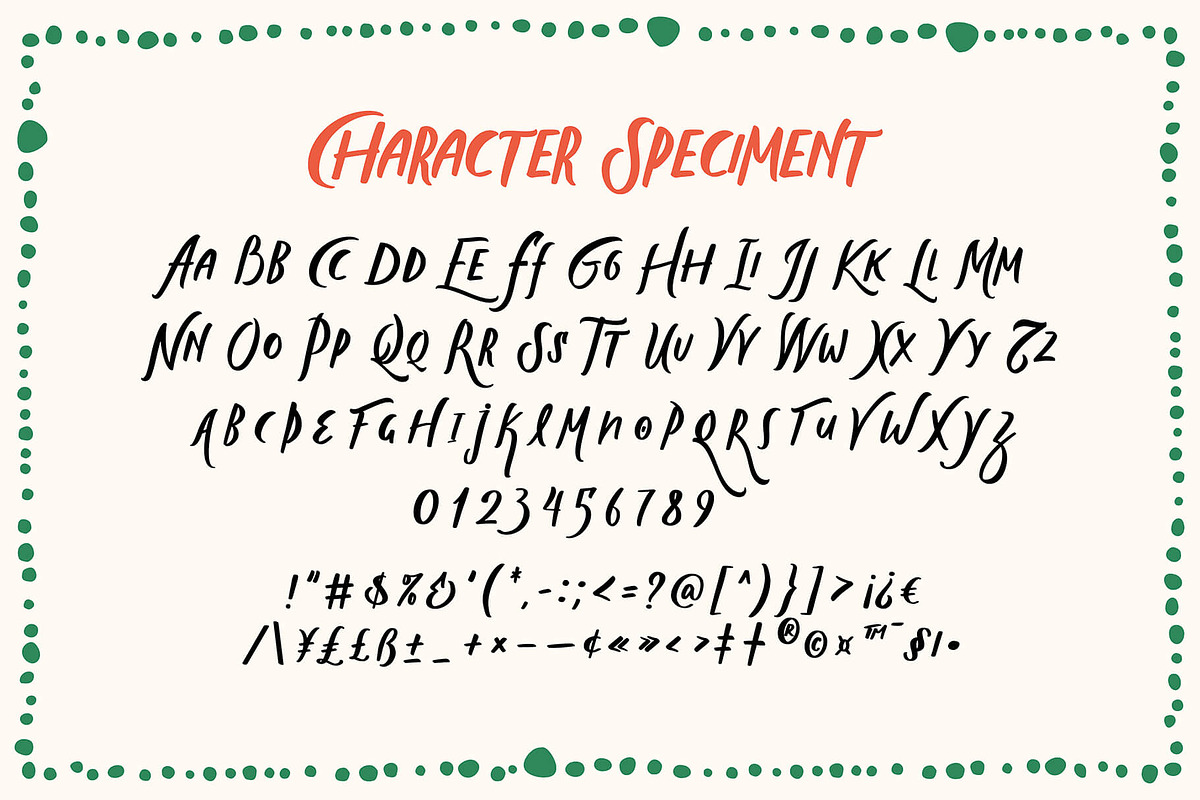 CHARACTER SPECIMENT
AA BB CC DD EE FF GG HH II JJ KK LL MM
NN OO PP QQ RR SS TT UU VV WW XX YY ZZ
ABCDEFGHIJKLMNOPQRSTUVWXYZ
0123456789
!"#$%&'(*,-:;<=?@[^)}]>¡¿€
/\¥££ß±_+×–—¢«»‹›‡†®©¤™¯§/•